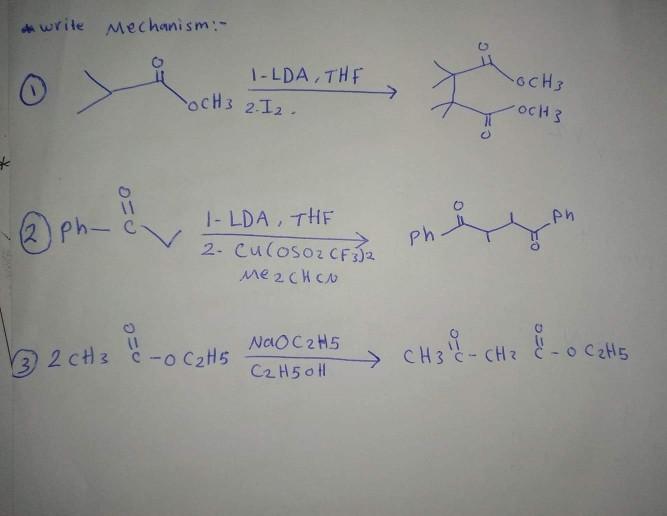 * write Mechanism:-
① O OCH3 1-LDA, THF 2-I2. O OCH3 OCH3 O
② Ph-C O 1-LDA, THF 2- Cu(OSO2CF3)2 Me2CHCN Ph O O Ph
③ 2CH3 O C-OC2H5 NaOC2H5 C2H5OH CH3 O C-CH2 O C-OC2H5